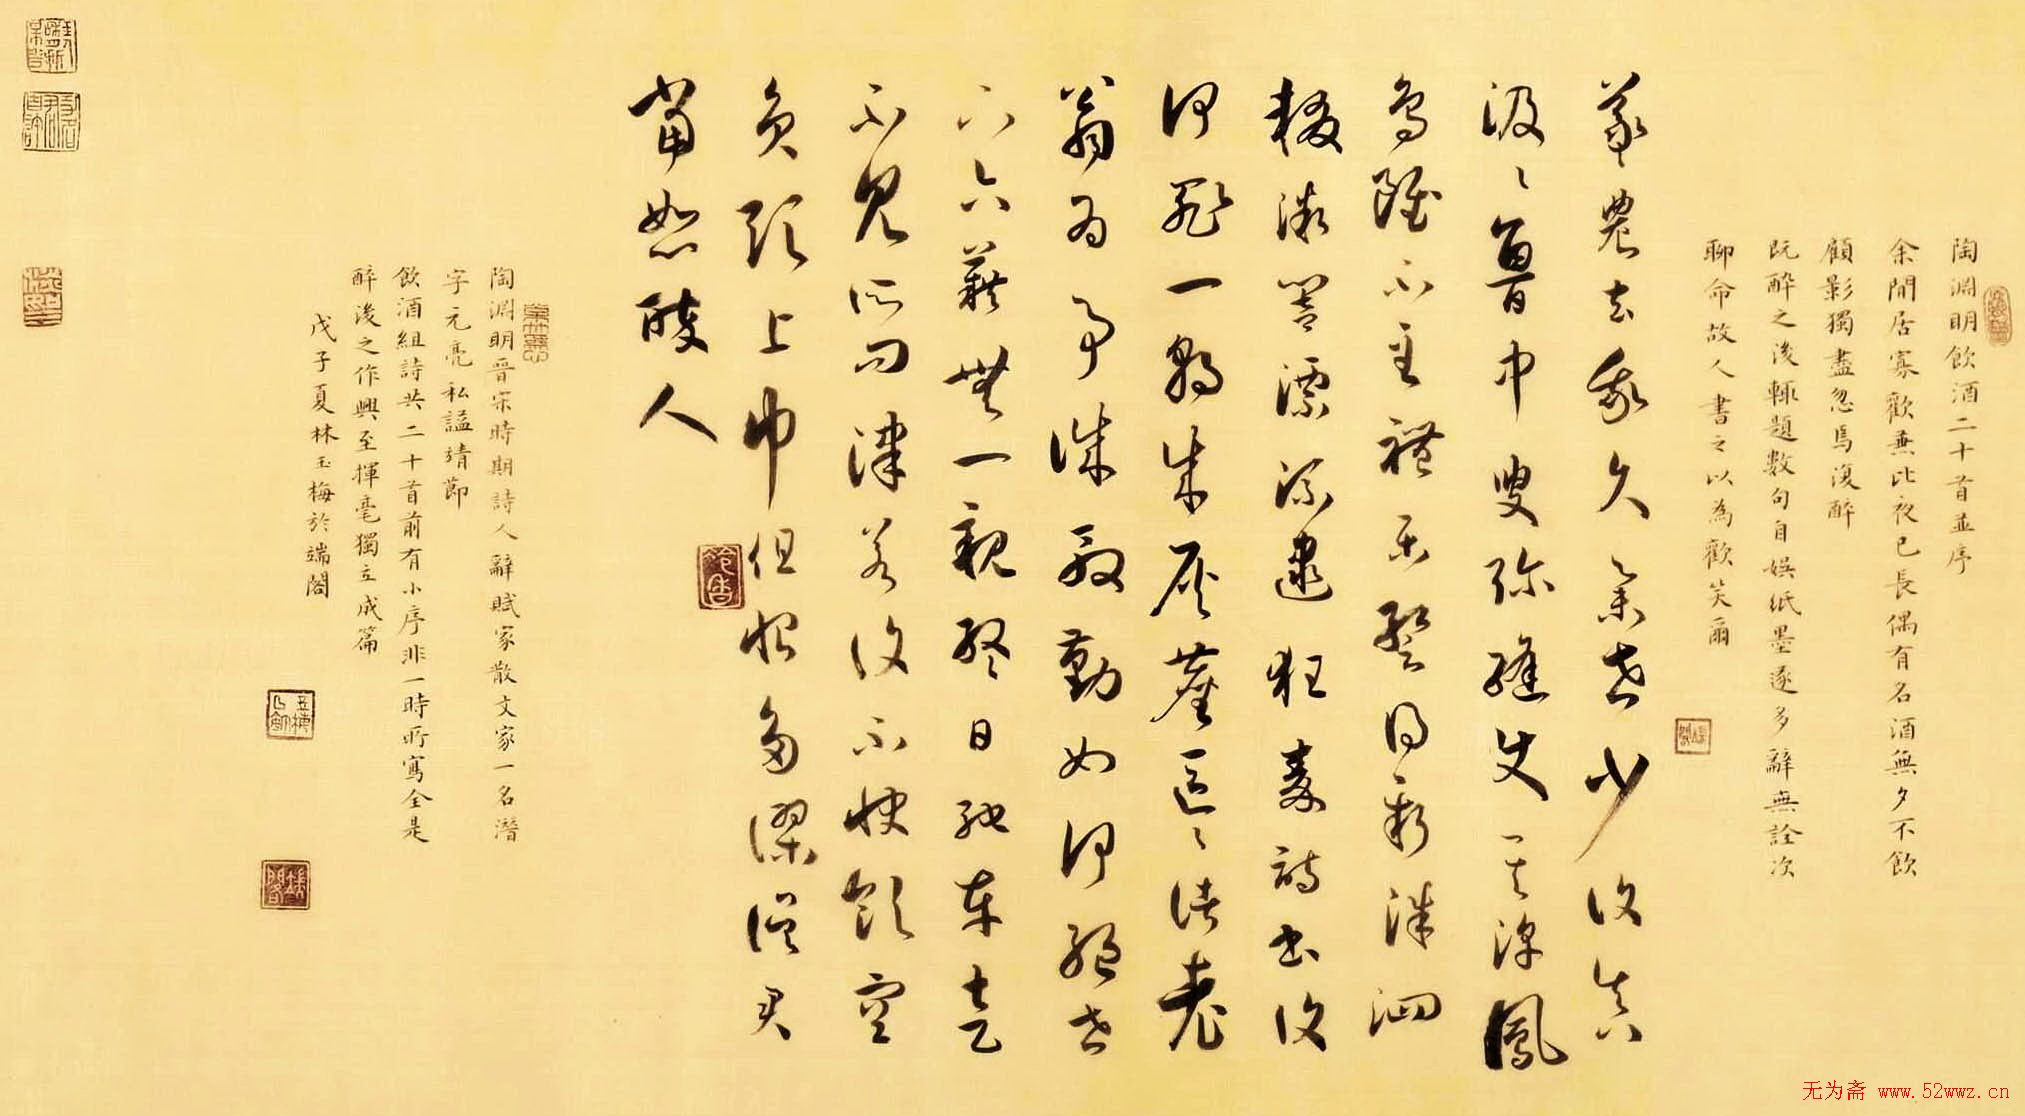 陶淵明飲酒二十首並序
余閒居寡歡兼比夜已長偶有名酒無夕不飲
顧影獨盡忽焉復醉
既醉之後輒題數句自娛紙墨遂多辭無詮次
聊命故人書之以為歡笑爾
羲農去我久舉世少復真
汲々魯中叟彌縫使其淳鳳
鳥雖不至禮樂暫得新洙泗
輟微響漂流逮狂秦詩書復
何罪一朝成灰塵區々諸老
翁為事誠殷勤如何絕世
下六籍無一親終日馳車走
不見所問津若復不快飲空
負頭上巾但恨多謬誤君
當恕醉人
陶淵明晉宋時期詩人辭賦家散文家一名潛
字元亮私謚靖節
飲酒組詩共二十首前有小序非一時所寫全是
醉後之作興至揮毫獨立成篇
戊子夏林玉梅於端閣
无为斋 www.52wwz.cn